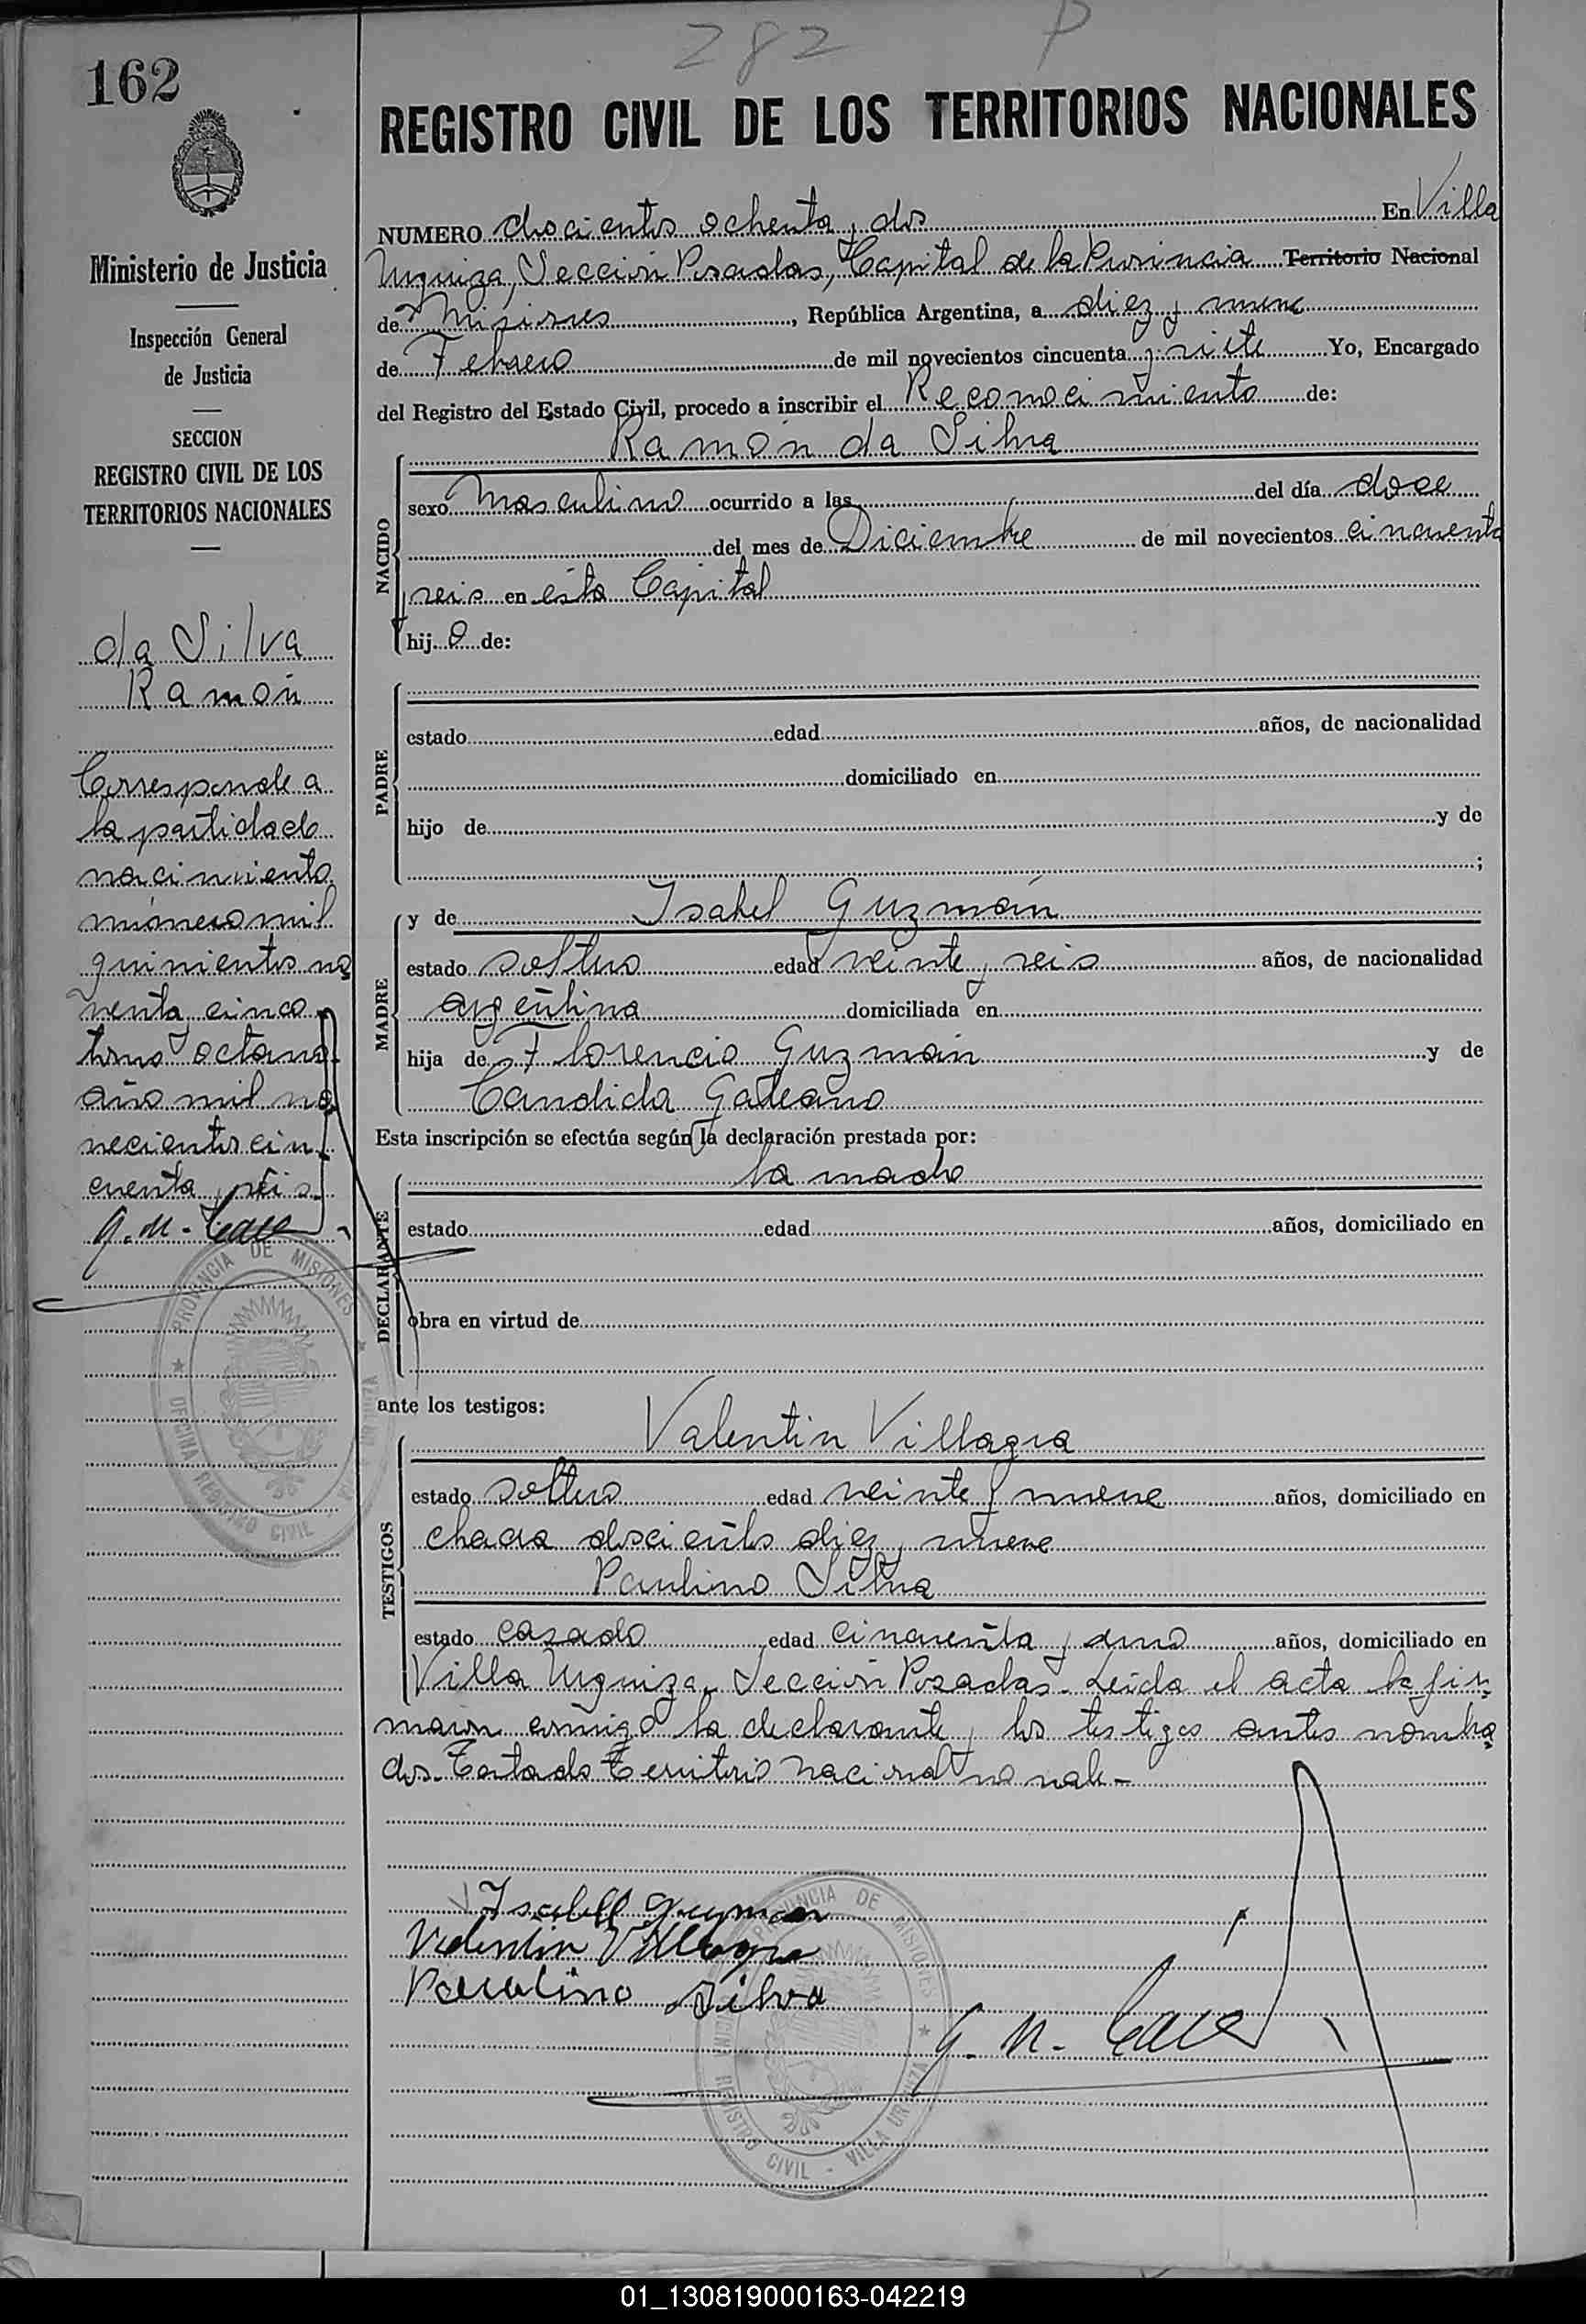 282 P
162
REGISTRO CIVIL DE LOS TERRITORIOS NACIONALES
Ministerio de Justicia
Inspección General
de Justicia
SECCION
REGISTRO CIVIL DE LOS
TERRITORIOS NACIONALES
da Silva
Ramón
Corresponde a
la partida de
nacimiento
número mil
quinientos no
venta y cinco
tomo octavo
año mil no
vecientos cin
cuenta y seis
G. N.
PROVINCIA DE MISIONES
OFICINA REGISTRO CIVIL
NUMERO doscientos ochenta y dos En Villa
Urquiza, Sección Posadas, Capital de la Provincia Territorio Nacional
de Misiones, República Argentina, a diez y nueve
de Febrero de mil novecientos cincuenta y siete Yo, Encargado
del Registro del Estado Civil, procedo a inscribir el Reconocimiento de:
Ramón da Silva
NACIDO
sexo Masculino ocurrido a las del día doce
del mes de Diciembre de mil novecientos cincuenta
y seis en esta Capital
hijo de:
PADRE
estado edad años, de nacionalidad
domiciliado en
hijo de y de
;
MADRE
y de Isabel Guzmán
estado soltera edad veinte y seis años, de nacionalidad
argentina domiciliada en
hija de Florencio Guzmán y de
Candida Galeano
Esta inscripción se efectúa según la declaración prestada por:
DECLARANTE
la madre
estado edad años, domiciliado en
obra en virtud de
ante los testigos:
TESTIGOS
Valentin Villagra
estado soltero edad veinte y nueve años, domiciliado en
chacra doscientos diez y nueve
Paulino Silva
estado casado edad cincuenta y uno años, domiciliado en
Villa Urquiza, Sección Posadas. Leida el acta la fir
maron conmigo la declarante y los testigos antes nombra
dos. Testado Territorio Nacional no vale.-
Isabel Guzman
Valentin Villagra
Paulino Silva
G. N.
PROVINCIA DE MISIONES
OFICINA REGISTRO CIVIL - VILLA URQUIZA
01_130819000163-042219